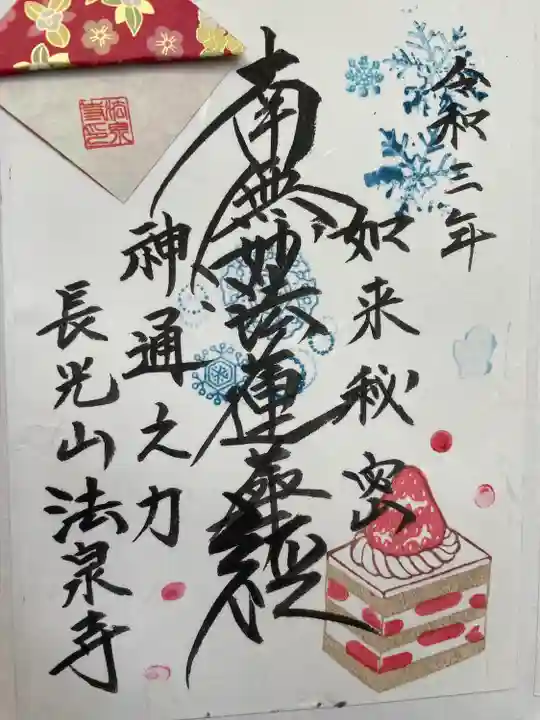 令和三年
如来秘密
南無妙法蓮華経
神通之力
長光山法泉寺
法泉
寺印